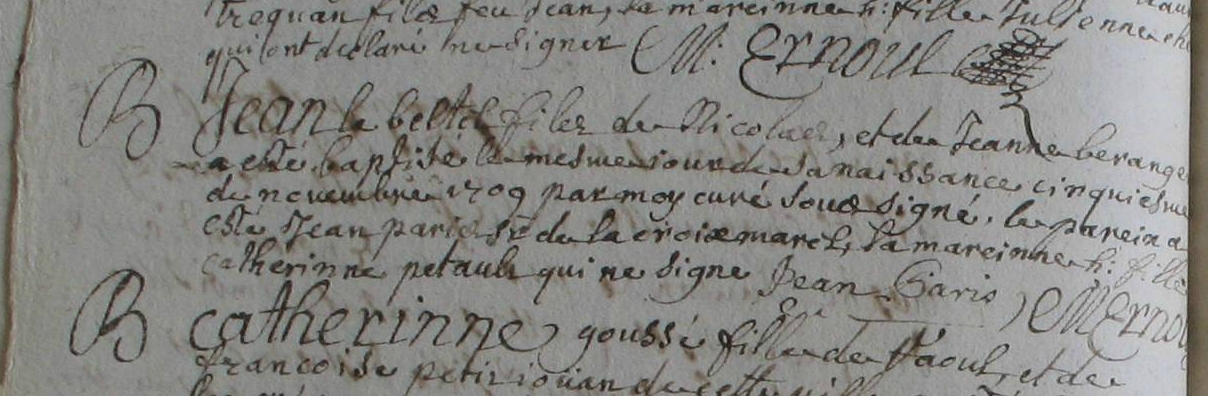 filz feu Jean, la mareinne h: fille
qui ont declaré ne signer M: Ernoul
B Jean le beltel filz de Nicolas, et de Jeanne berange
a esté baptisé le mesme jour de sa naissance cinquiesme
de novembre 1709 par moy curé sousigné. le parein a
esté Jean paris sr de la croixmarel, la mareinne h: fille
catherinne petault qui ne signe Jean Paris, M Ernou
B catherinne goussé fille de Raoul, et de
francoise petitjouan de cette ville